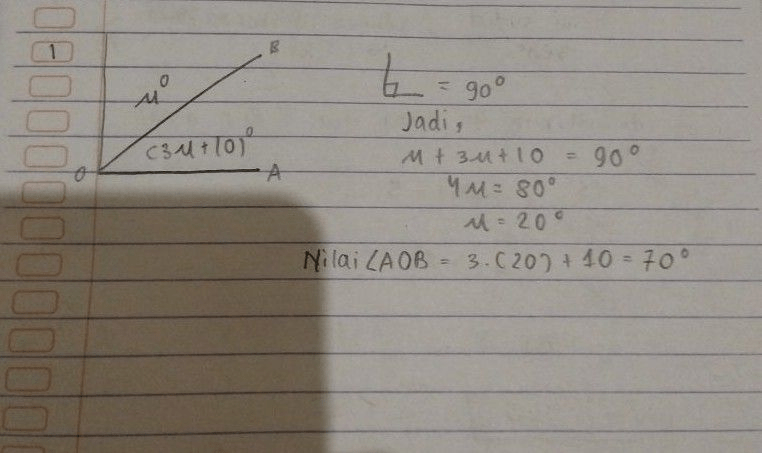 1
B
x°
(3x+10)°
O
A
= 90°
Jadi,
x + 3x + 10 = 90°
4x = 80°
x = 20°
Nilai ∠AOB = 3.(20) + 10 = 70°